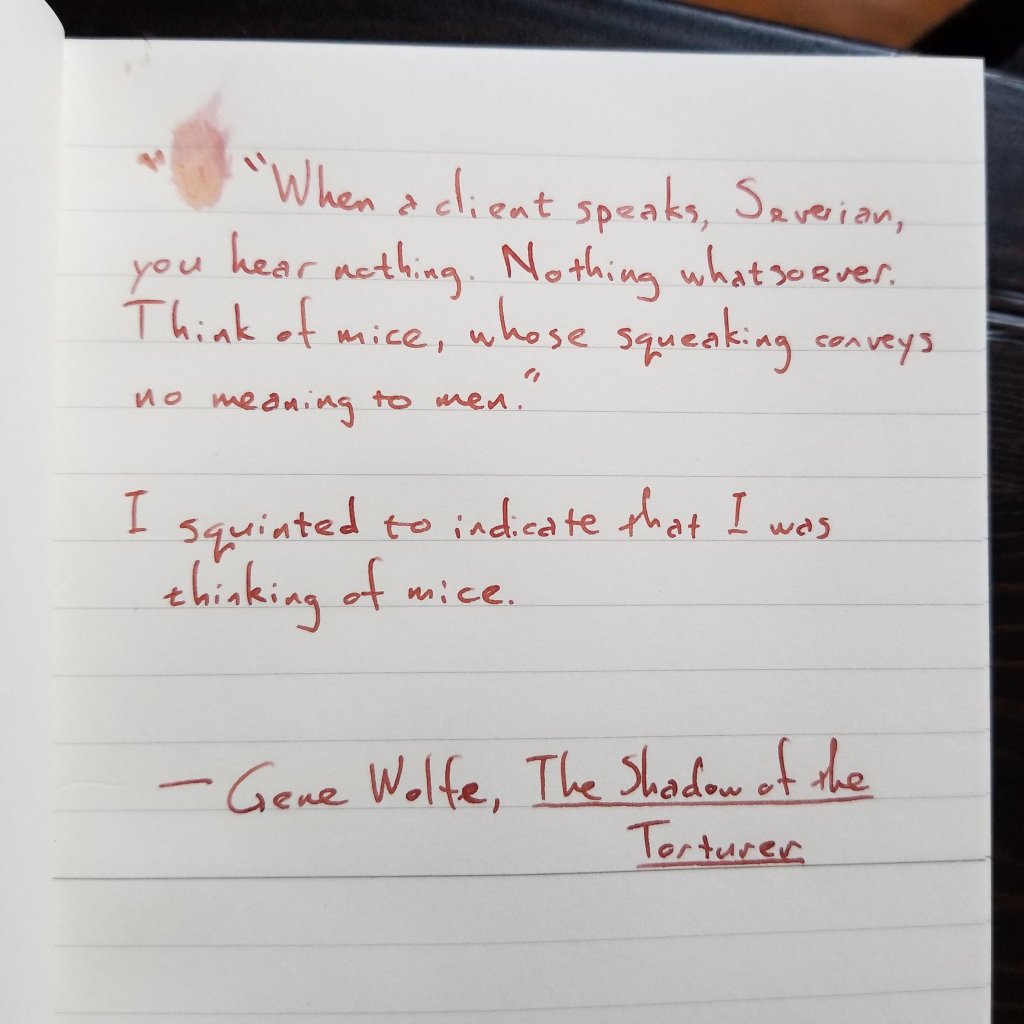 " "When a client speaks, Severian,
you hear nothing. Nothing whatsoever.
Think of mice, whose squeaking conveys
no meaning to men."
I squinted to indicate that I was
thinking of mice.
— Gene Wolfe, The Shadow of the
Torturer